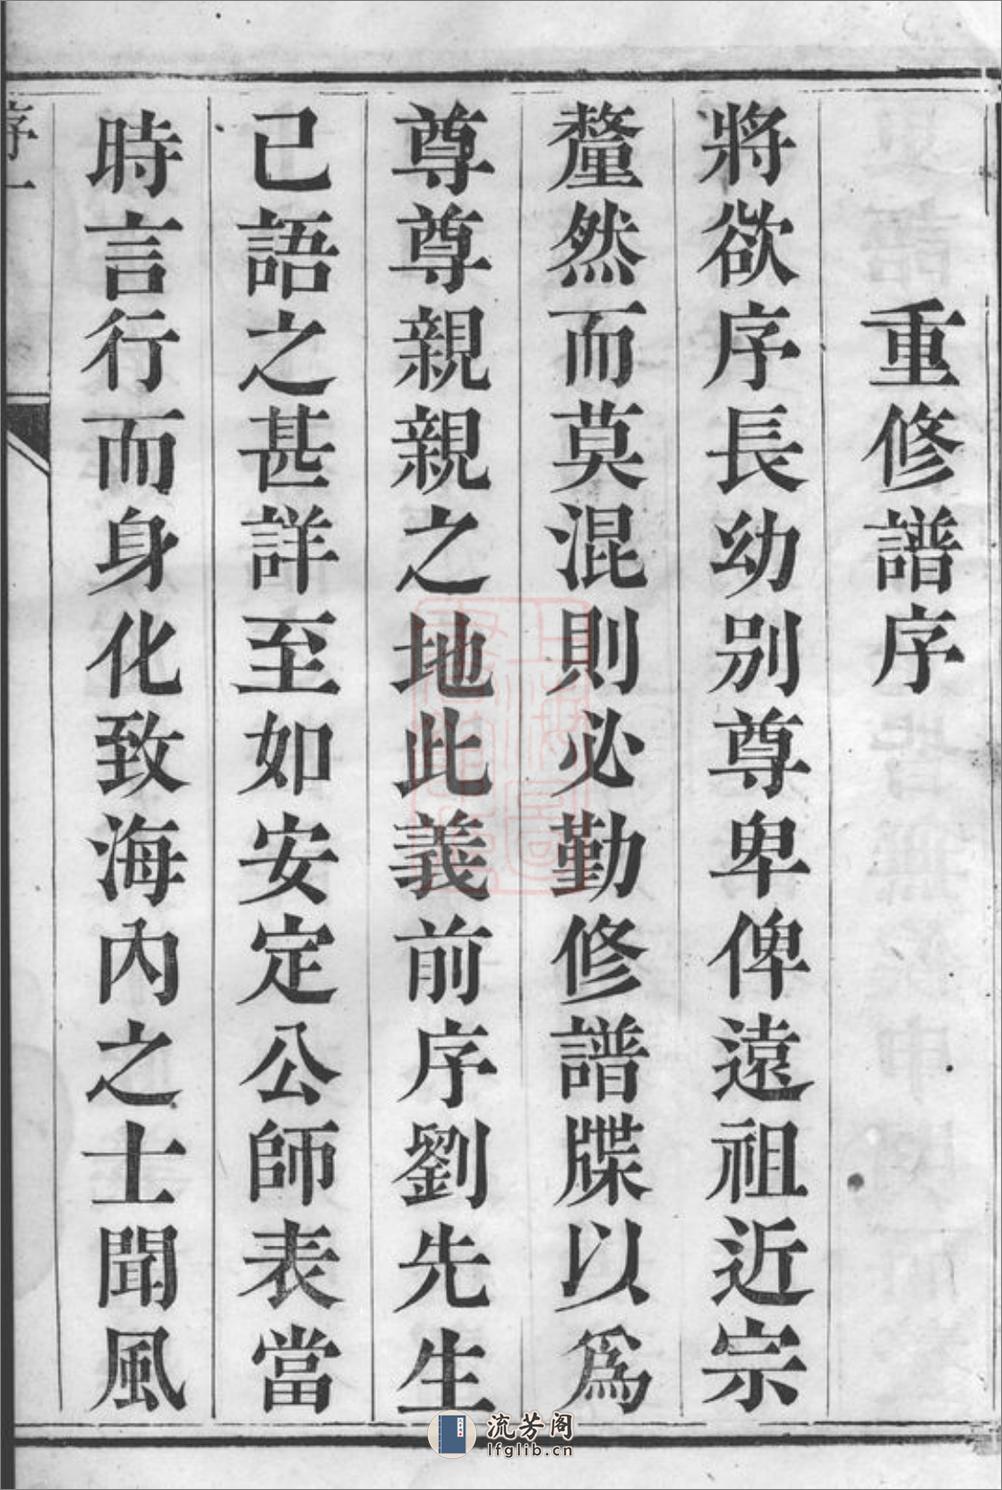 重修譜序
將欲序長幼別尊卑俾遠祖近宗
釐然而莫混則必勤修譜牒以爲
尊尊親親之地此義前序劉先生
已語之甚詳至如安定公師表當
時言行而身化致海內之士聞風
序一
流芳阁
lfglib.cn